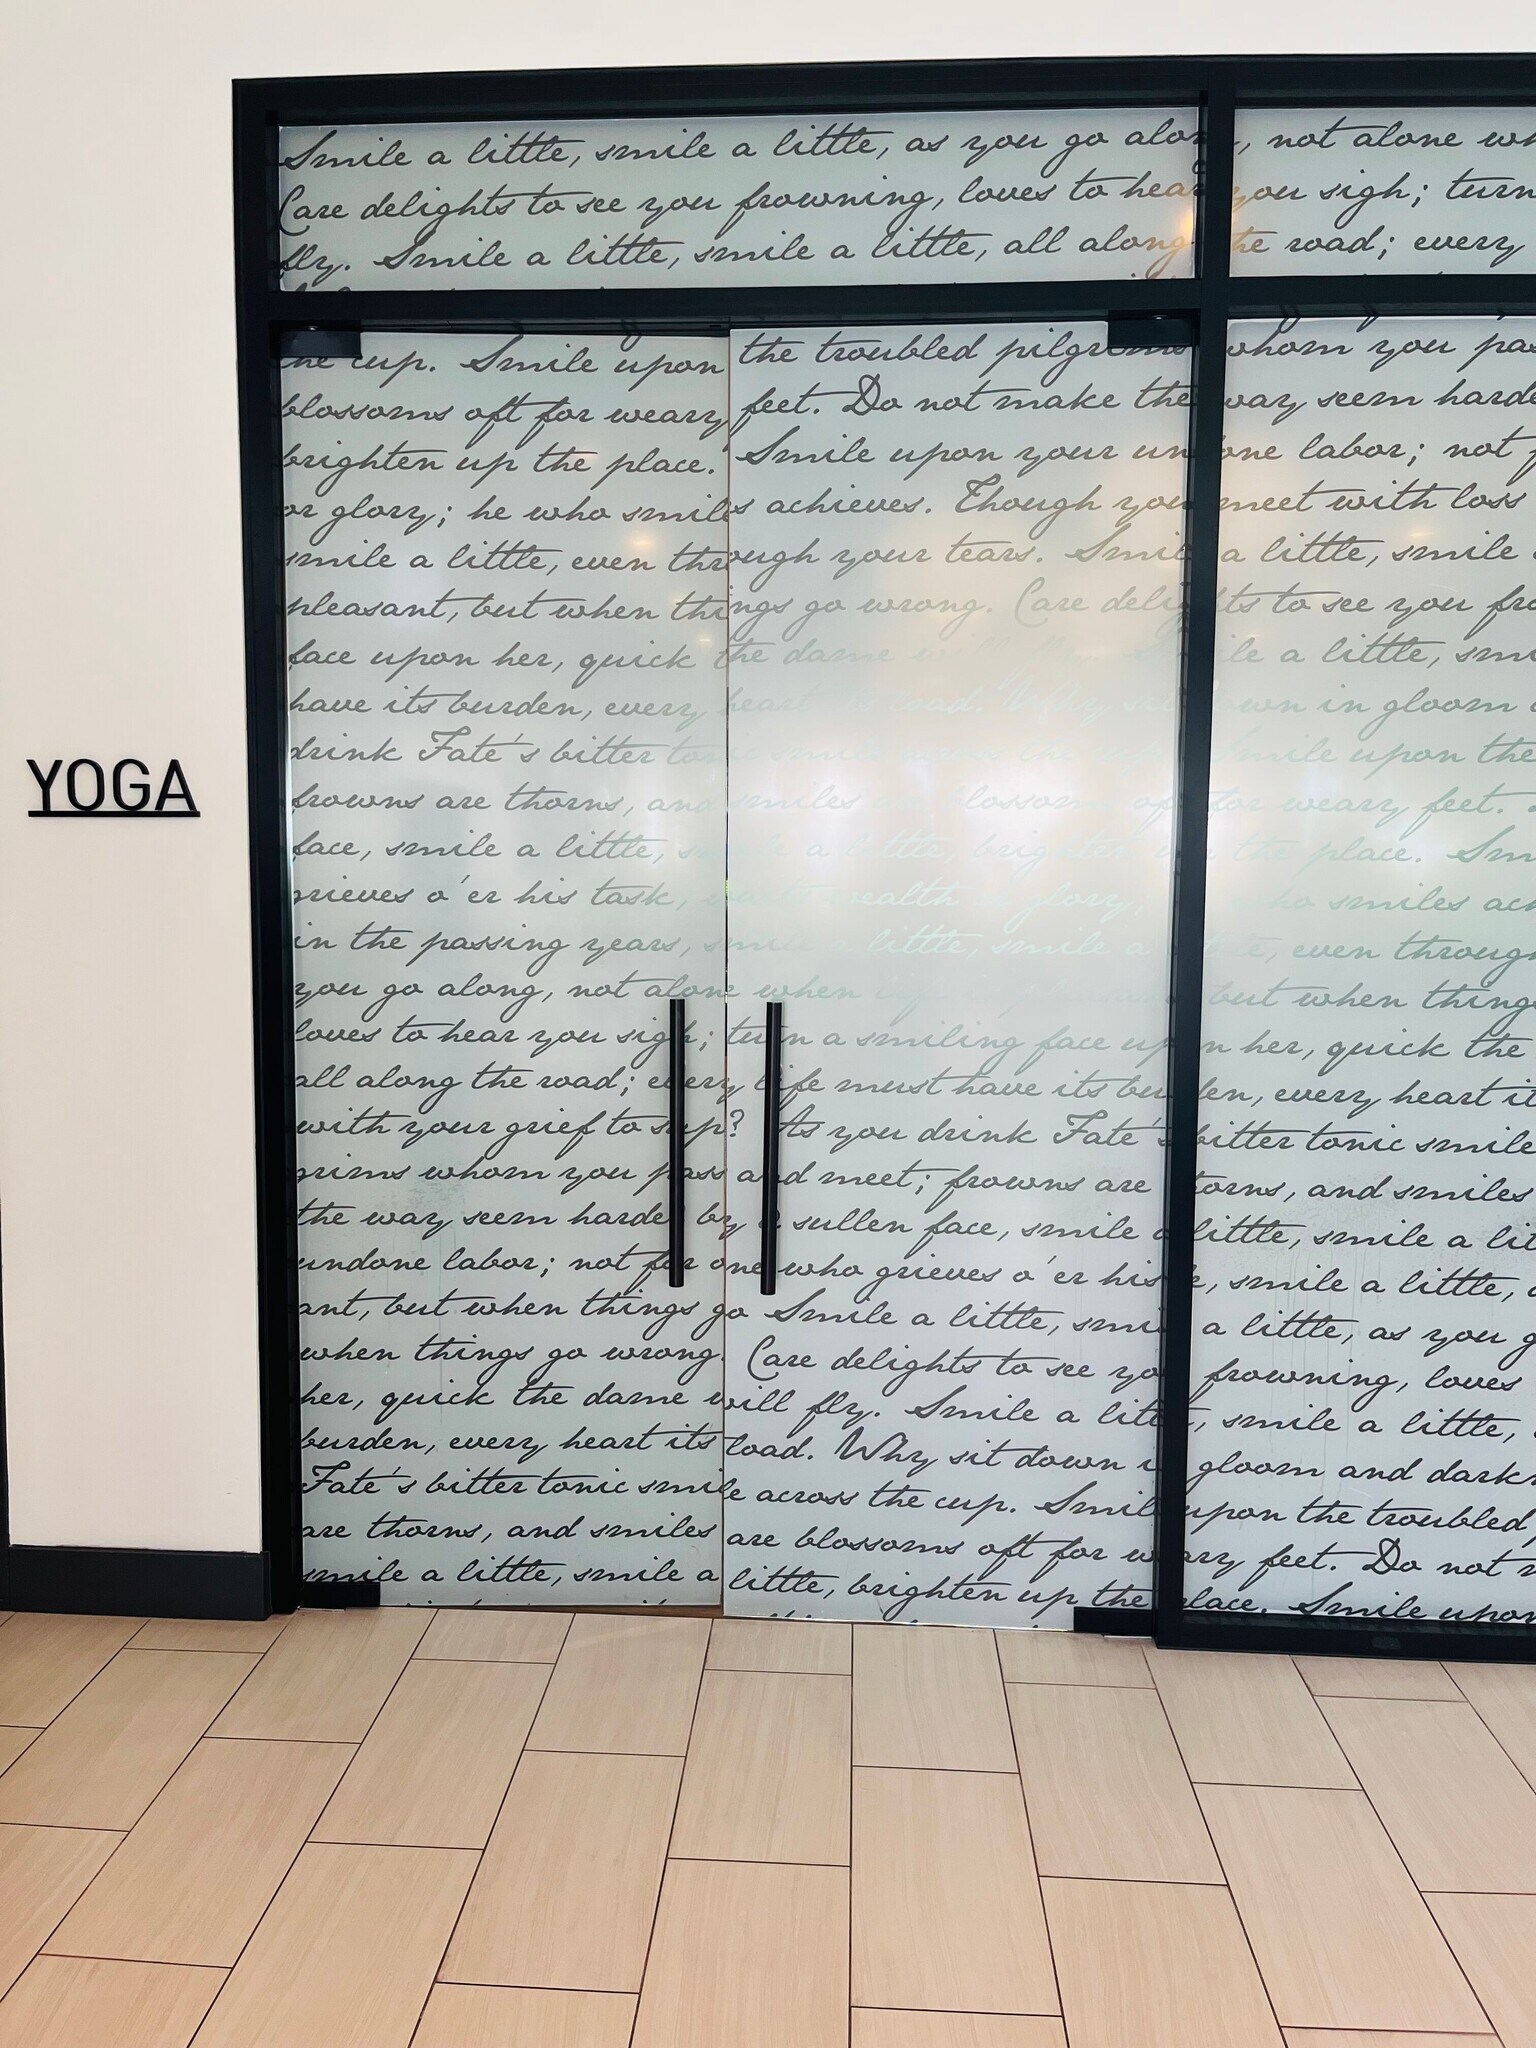 Smile a little, smile a little, as you go along, not alone
Care delights to see you frowning, loves to hear you sigh; turn
fly. Smile a little, smile a little, all along the road; every
the cup. Smile upon the troubled pilgrims whom you
blossoms oft for weary feet. Do not make the way seem
brighten up the place. Smile upon your undone labor; not
or glory; he who smiles achieves. Though you meet with loss
smile a little, even through your tears. Smile a little, smile
pleasant, but when things go wrong. Care delights to see you
face upon her, quick the dame a little,
have its burden, every heart load. down in gloom
drink Fate's bitter Smile upon the
YOGA
frowns are thorns, and smiles blossoms oft for weary feet.
face, smile a little, a little, brighten the place.
grieves o'er his task, wealth glory; who smiles
in the passing years, little, smile a even through
you go along, not alone when but when things
loves to hear you sigh; turn a smiling face upon her, quick the
all along the road; every life must have its burden, every heart
with your grief to sup? As you drink Fate's bitter tonic smile
grims whom you pass and meet; frowns are thorns, and smiles
the way seem harder by a sullen face, smile a little, smile a
undone labor; not for one who grieves o'er his smile a little,
ant, but when things go Smile a little, smile a little, as you
when things go wrong. Care delights to see you frowning, loves
her, quick the dame will fly. Smile a little, smile a little,
burden, every heart its load. Why sit down in gloom and
Fate's bitter tonic smile across the cup. Smile upon the troubled
are thorns, and smiles are blossoms oft for weary feet. Do not
smile a little, smile a little, brighten up the place. Smile upon